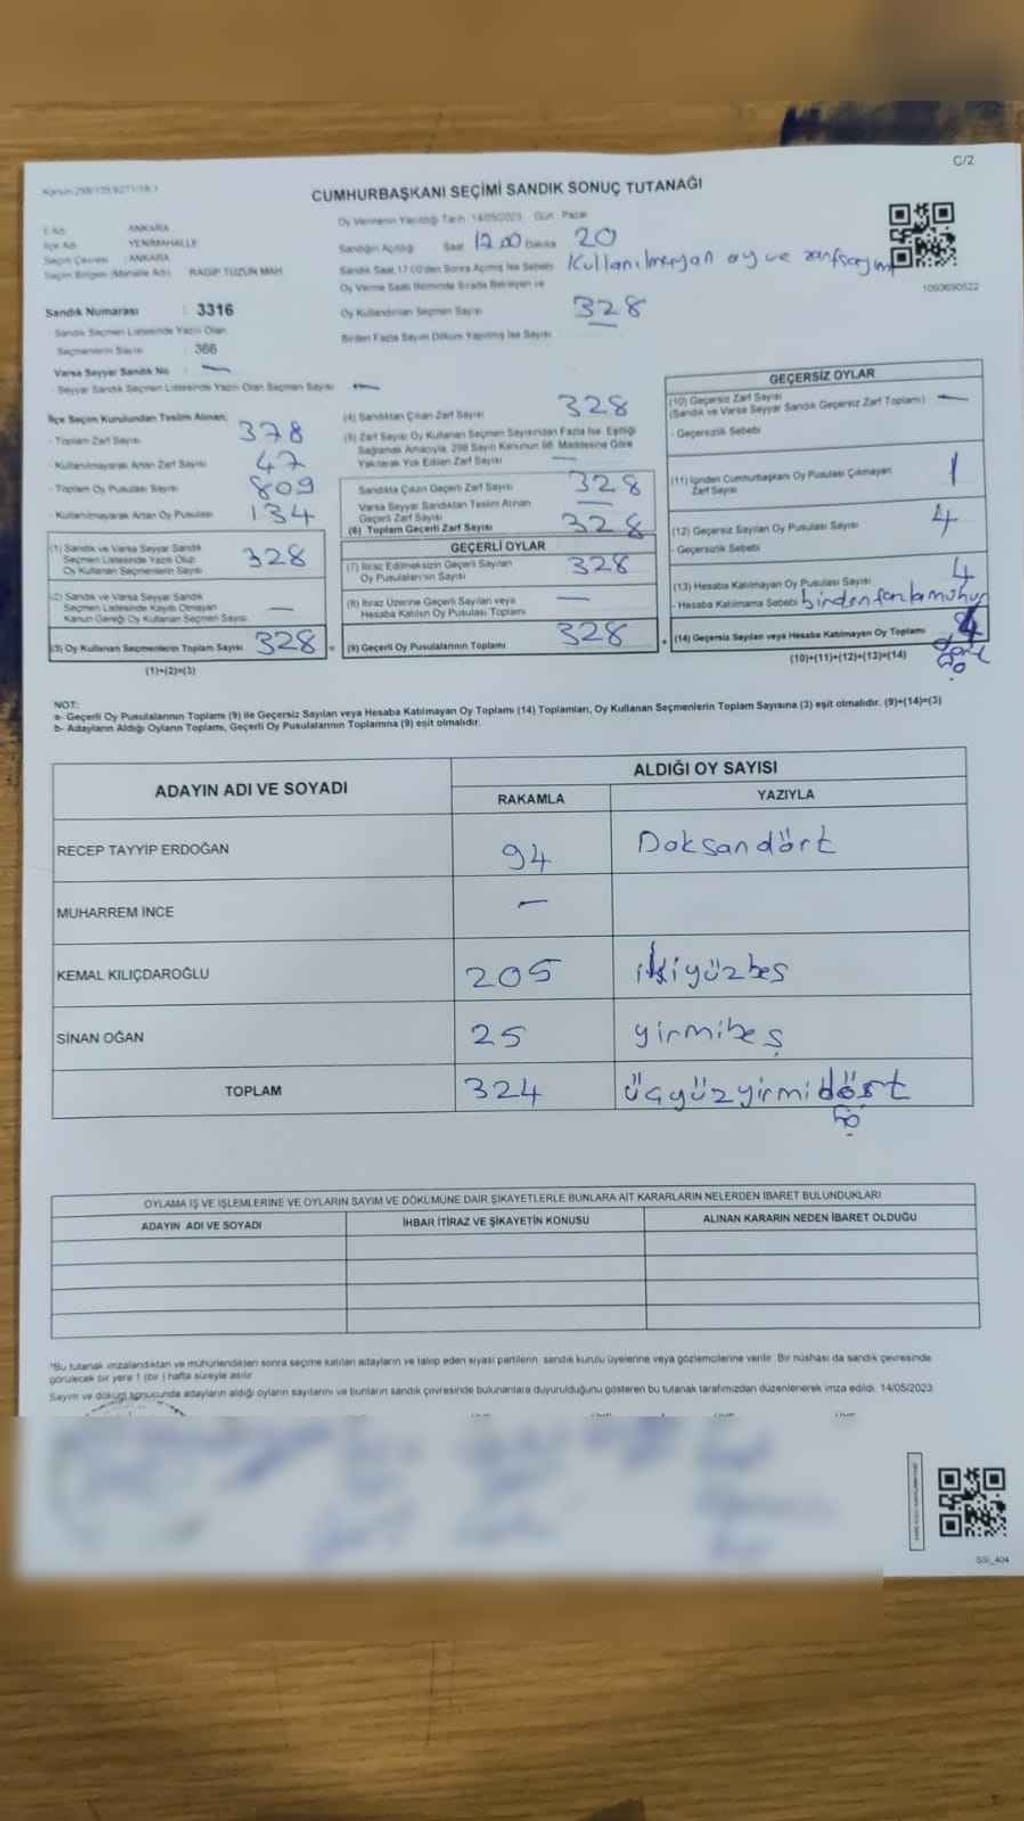 C/2
CUMHURBAŞKANI SEÇİMİ SANDIK SONUÇ TUTANAĞI
Oy Vermenin Yapıldığı Tarih: 14/05/2023 Gün: Pazar
İl Adı : ANKARA
İlçe Adı : YENİMAHALLE
Seçim Çevresi : ANKARA
Seçim Bölgesi (Mahalle Adı) : RAGIP TÜZÜN MAH
Sandık Numarası : 3316
Sandık Seçmen Listesinde Yazılı Olan
Seçmenlerin Sayısı : 366
Varsa Seyyar Sandık No : —
Seyyar Sandık Seçmen Listesinde Yazılı Olan Seçmen Sayısı : —
Sandığın Açıldığı Saat 17.00 Dakika 20
Sandık Saat 17.00'den Sonra Açılmış İse Sebebi Kullanılmayan oy ve zarf sayımı
Oy Verme Saati Bitiminde Sırada Bekleyen ve
Oy Kullandırılan Seçmen Sayısı 328
Birden Fazla Sayım Döküm Yapılmış İse Sayısı
1093690522
İlçe Seçim Kurulundan Teslim Alınan;
- Toplam Zarf Sayısı 378
- Kullanılmayarak Artan Zarf Sayısı 47
- Toplam Oy Pusulası Sayısı 809
- Kullanılmayarak Artan Oy Pusulası 134
(1) Sandık ve Varsa Seyyar Sandık
Seçmen Listesinde Yazılı Olup
Oy Kullanan Seçmenlerin Sayısı 328
(2) Sandık ve Varsa Seyyar Sandık
Seçmen Listesinde Kayıtlı Olmayan
Kanun Gereği Oy Kullanan Seçmen Sayısı —
(3) Oy Kullanan Seçmenlerin Toplam Sayısı 328
(1)+(2)=(3)
(4) Sandıktan Çıkan Zarf Sayısı 328
(5) Zarf Sayısı Oy Kullanan Seçmen Sayısından Fazla İse, Eşitliği
Sağlamak Amacıyla, 298 Sayılı Kanunun 98. Maddesine Göre
Yakılarak Yok Edilen Zarf Sayısı —
Sandıkta Çıkan Geçerli Zarf Sayısı 328
Varsa Seyyar Sandıktan Teslim Alınan
Geçerli Zarf Sayısı —
(6) Toplam Geçerli Zarf Sayısı 328
GEÇERLİ OYLAR
(7) İtiraz Edilmeksizin Geçerli Sayılan
Oy Pusulalarının Sayısı 328
(8) İtiraz Üzerine Geçerli Sayılan veya
Hesaba Katılan Oy Pusulası Toplamı —
(9) Geçerli Oy Pusulalarının Toplamı 328
GEÇERSİZ OYLAR
(10) Geçersiz Zarf Sayısı —
(Sandık ve Varsa Seyyar Sandık Geçersiz Zarf Toplamı)
- Geçersizlik Sebebi
(11) İçinden Cumhurbaşkanı Oy Pusulası Çıkmayan
Zarf Sayısı 1
(12) Geçersiz Sayılan Oy Pusulası Sayısı 4
- Geçersizlik Sebebi
(13) Hesaba Katılmayan Oy Pusulası Sayısı 4
- Hesaba Katılmama Sebebi birden fazla mühür
(14) Geçersiz Sayılan veya Hesaba Katılmayan Oy Toplamı 4
(10)+(11)+(12)+(13)=(14)
NOT:
a- Geçerli Oy Pusulalarının Toplamı (9) ile Geçersiz Sayılan veya Hesaba Katılmayan Oy Toplamı (14) Toplamları, Oy Kullanan Seçmenlerin Toplam Sayısına (3) eşit olmalıdır. (9)+(14)=(3)
b- Adayların Aldığı Oyların Toplamı, Geçerli Oy Pusulalarının Toplamına (9) eşit olmalıdır.
ADAYIN ADI VE SOYADI
ALDIĞI OY SAYISI
RAKAMLA YAZIYLA
RECEP TAYYİP ERDOĞAN 94 Doksandört
MUHARREM İNCE —
KEMAL KILIÇDAROĞLU 205 ikiyüzbeş
SİNAN OĞAN 25 yirmibeş
TOPLAM 324 üçyüzyirmidört
OYLAMA İŞ VE İŞLEMLERİNE VE OYLARIN SAYIM VE DÖKÜMÜNE DAİR ŞİKAYETLERLE BUNLARA AİT KARARLARIN NELERDEN İBARET BULUNDUKLARI
ADAYIN ADI VE SOYADI İHBAR İTİRAZ VE ŞİKAYETİN KONUSU ALINAN KARARIN NEDEN İBARET OLDUĞU
*Bu tutanak imzalandıktan ve mühürlendikten sonra seçime katılan adayların ve talep eden siyasi partilerin sandık kurulu üyelerine veya gözlemcilerine verilir. Bir nüshası da sandık çevresinde
görülecek bir yere 1 (bir) hafta süreyle asılır.
Sayım ve döküm sonucunda adayların aldığı oyların sayılarını ve bunların sandık çevresinde bulunanlara duyurulduğunu gösteren bu tutanak tarafımızdan düzenlenerek imza edildi. 14/05/2023
SSI_404